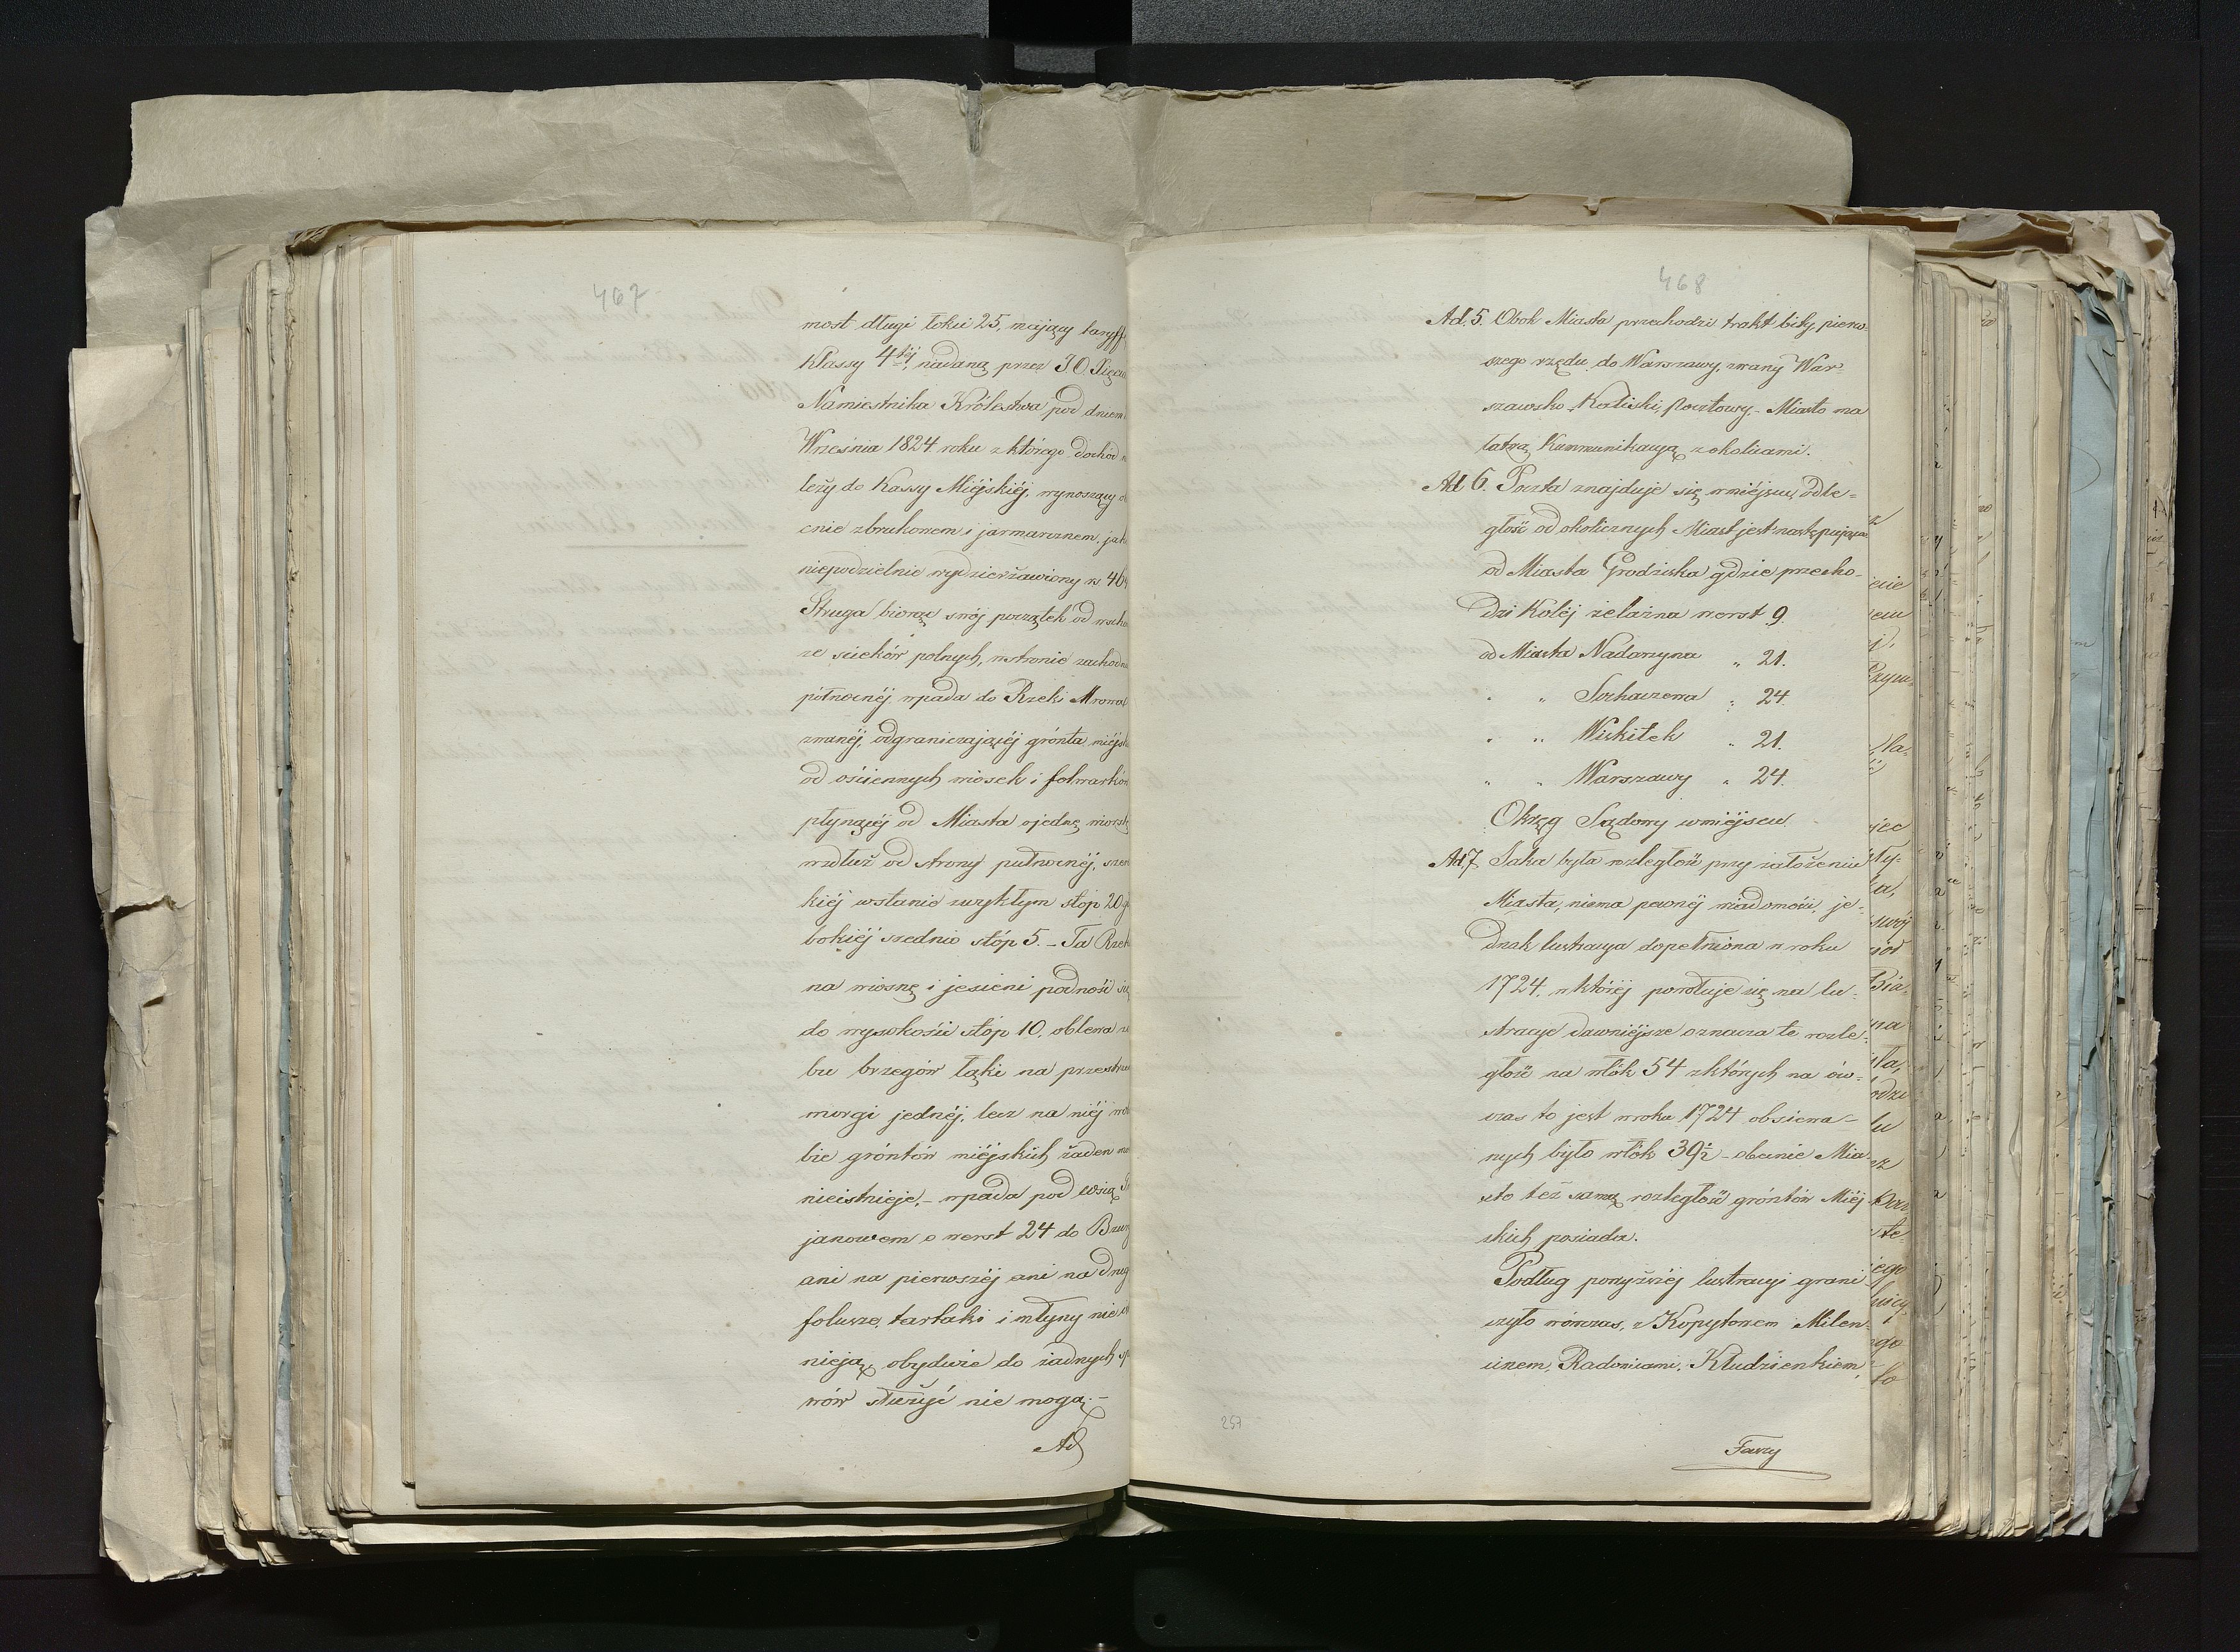 467
most długi łokci 25. mający taryff
Klassy 4téj, nadaną przez JO Xięcia
Namiestnika Królestwa pod dniem
Września 1824 roku z którego dochód n
leży do Kassy Miéjskiéj, wynoszący
cnie z brukowem i jarmarcznem, jak
niepodzielnie wydzierżawiony rs 46
Struga biorąc swój początek od wscho
ze ścieków polnych, w stronie zachodn
północnéj wpada do Rzeki Mrowa
zwanéj, odgraniczającéj grónta miéjs
od ościennych wiosek i folwarków
płynącéj od Miasta o jedną wiorstę
wzdłuż od strony pułnocnéj, szero
kiéj w stanie zwykłym stóp 20 g
bokiéj srednio stóp 5. – Ta Rzek
na wiosnę i jesieni podnosi się
do wysokości stóp 10. oblewa z
bu brzegów łąki na przestrze
morgi jednéj, lecz na niéj
bie gróntów miéjskich żaden
nieistnieje, – wpada pod wsią
janowem o werst 24 do Bzur
ani na pierwszéj ani na drug
folusze, tartaki i młyny nie
nieją, obydwie do żadnych
wów służyć nie mogą. –
Ad
468
Ad. 5. Obok Miasta przechodzi trakt bity, pierw-
szego rzędu, do Warszawy, zwany War-
szawsko-Kaliski, Pocztowy. – Miasto ma
łatwą Kommunikacyą z okolicami.
Ad 6. Poczta znajduje się w miéjscu, odle-
głość od okolicznych Miast jest następująca
od Miasta Grodziska gdzie przecho-
dzi Koléj żelazna werst 9.
od Miasta Nadarzyna " 21.
" " Sochaczewa " 24.
" " Wiskitek " 21.
" " Warszawy " 24.
Okręg Sądowy w miéjscu.
Ad 7. Jaka była rozległość przy założeniu
Miasta, niema pewnéj wiadomości, je-
dnak lustracya dopełniona w roku
1724. w któréj powołuje się na lu-
stracye dawniéjsze oznacza te rozle-
głość na włók 54 z których na ów-
czas to jest w roku 1724 obsiewa-
nych było włók 39½ – obecnie Mia
sto też samą rozległość gróntów Miéj
skich posiada.
Podług powyższéj lustracyi grani
czyło wówczas, z Kopytowem Milen-
cinem, Radonicami, Kłudzienkiem,
257
Fawry